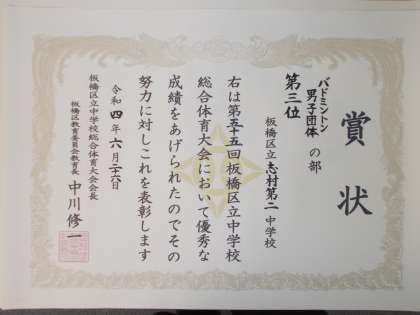 賞状
バドミントン
男子団体
の部
第三位
板橋区立志村第二中学校
右は第五十五回板橋区立中学校
総合体育大会において優秀な
成績をあげられたのでその
努力に対しこれを表彰します
令和四年六月二十六日
板橋区立中学校総合体育大会会長
板橋区教育委員会教育長
中川修一